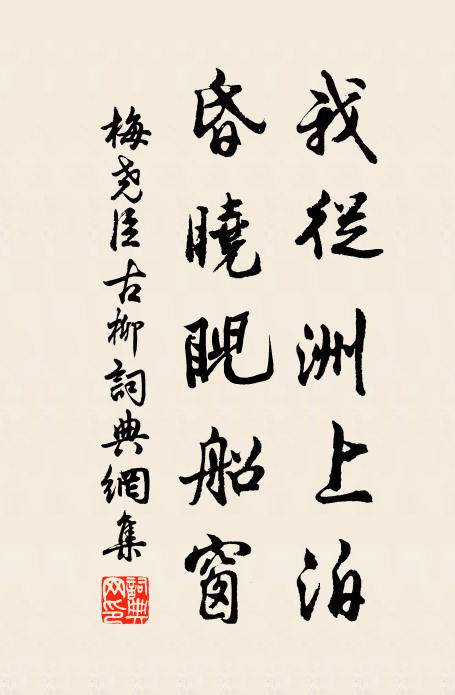 我從洲上泊
昏曉睨船窗
梅堯臣古柳詞典網集
詞典
网印